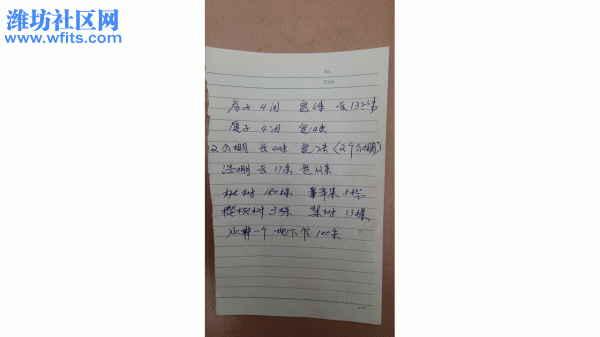 潍坊社区网
www.wfits.com
No.
Date
房子 4间 宽6米 长13.5米
厦子 4间 宽4米
2个棚 长40米 宽7米 (2个大棚)
长17米 宽12米
桃树 180棵 苹果 5棵
樱桃树 3棵 梨树 13棵
水井一个 地下管 100米